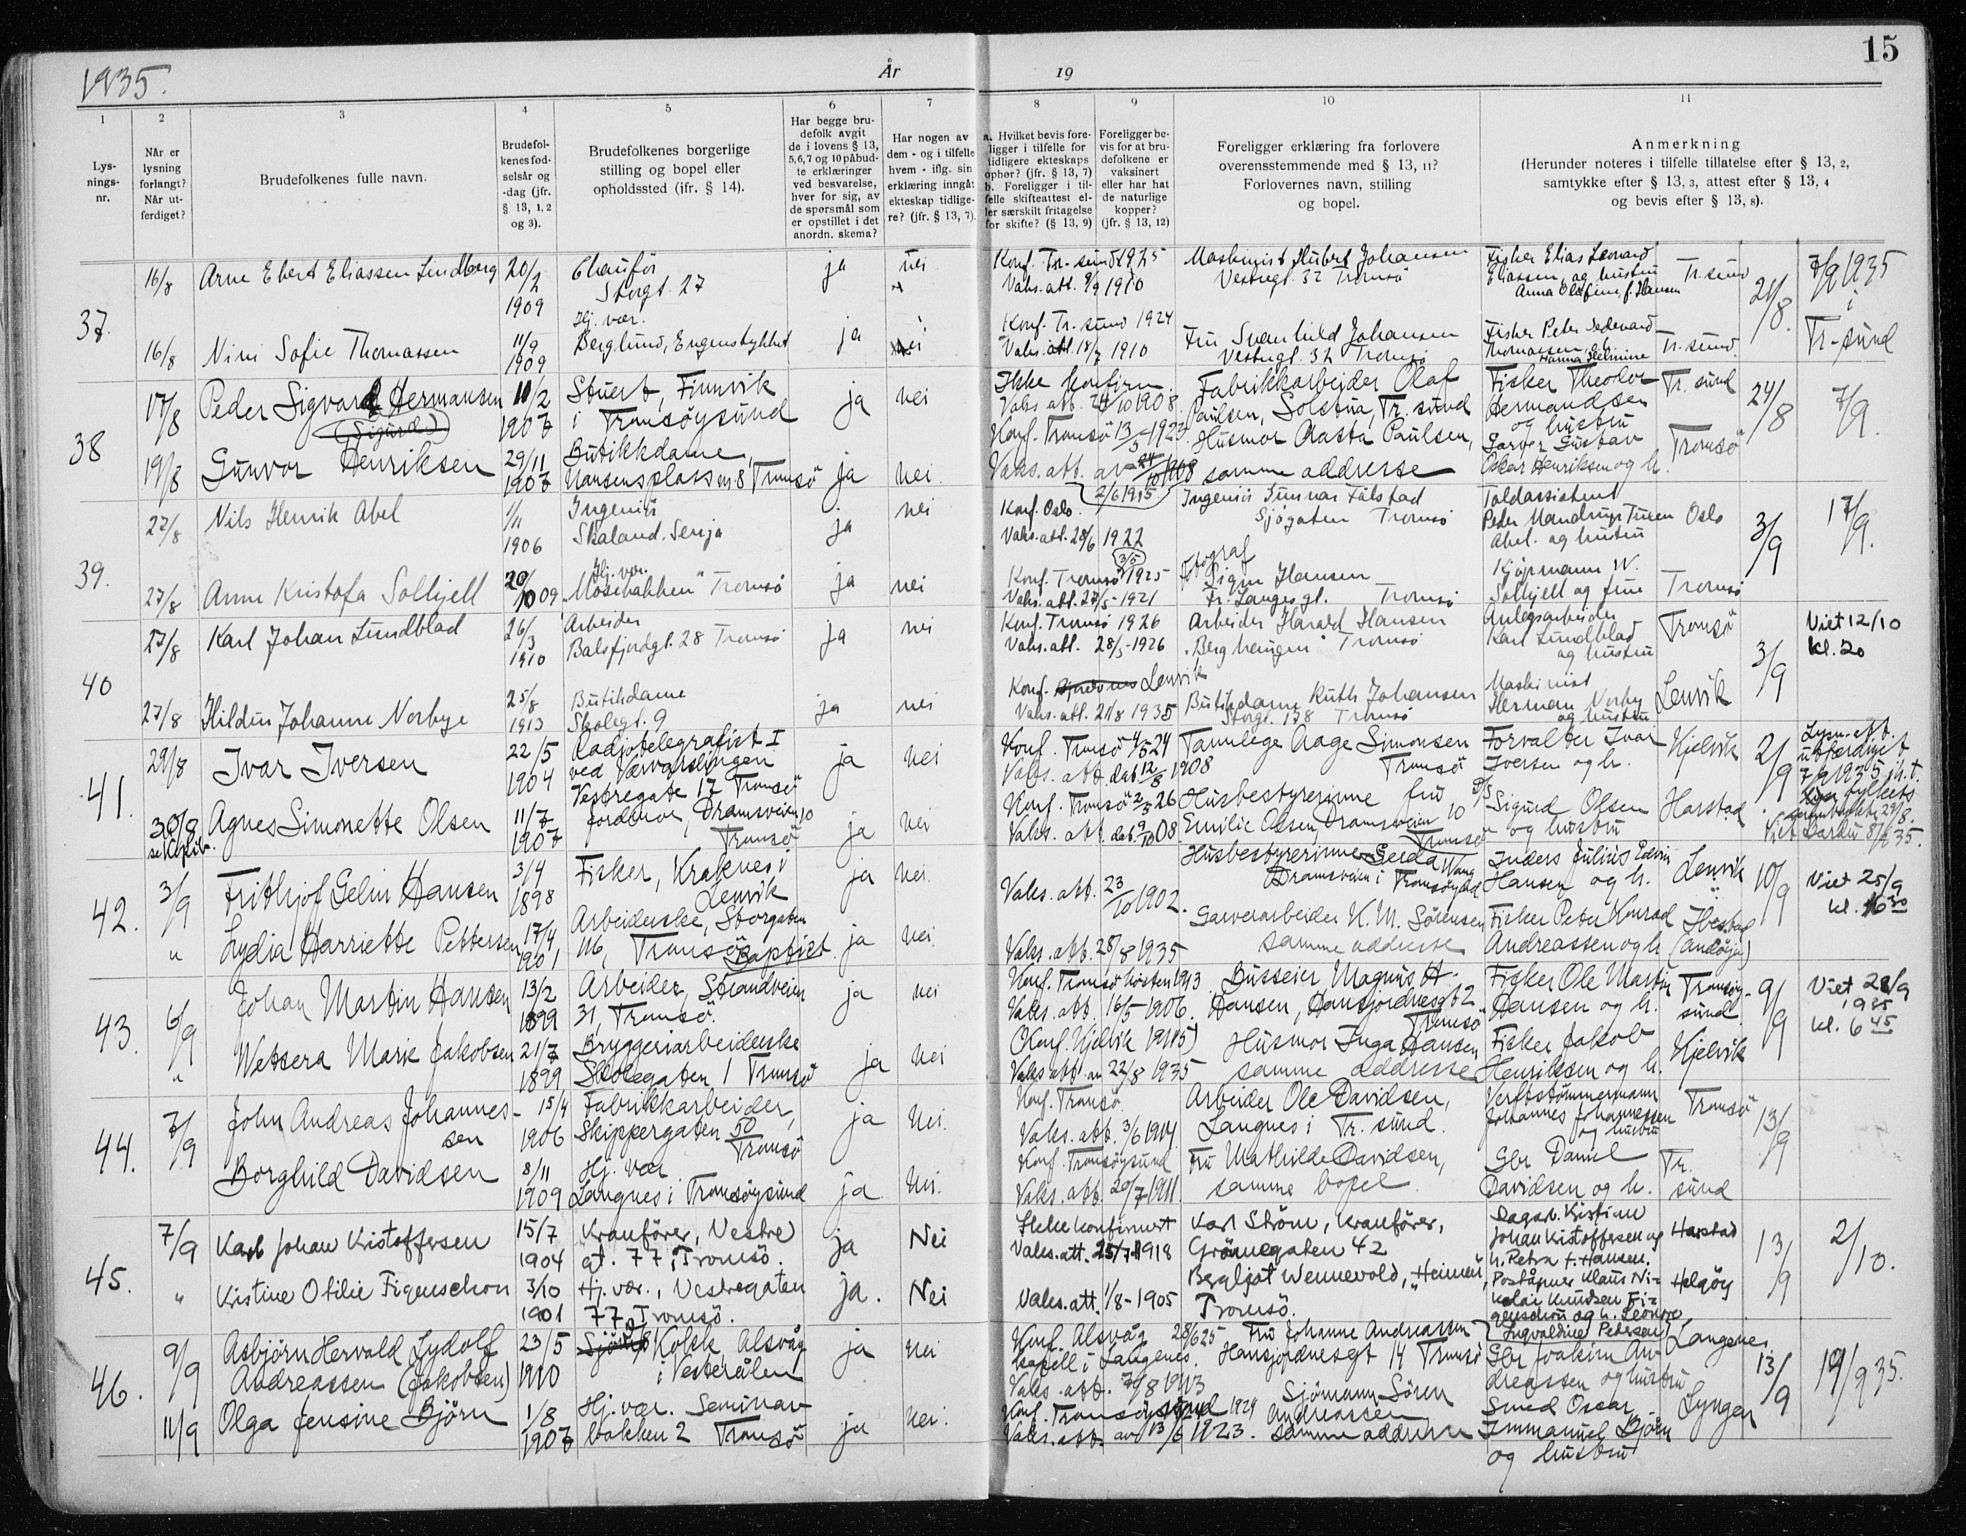 1935.
År
19
15
1
2
3
4
5
6
7
8
9
10
11
Lys-
nings-
nr.
Når er
lysning
forlangt?
Når ut-
ferdiget?
Brudefolkenes fulle navn.
Brudefol-
kenes fød-
selsår og
-dag (jfr.
§ 13, 1, 2
og 3).
Brudefolkenes borgerlige
stilling og bopel eller
opholdssted (jfr. § 14).
Har begge bru-
defolk avgit
de i lovens § 13,
5, 6, 7 og 10 påbud-
te erklæringer
ved besvarelse,
hver for sig, av
de spørsmål som
er opstillet i det
anordn. skema?
Har nogen av
dem - og i tilfelle
hvem - iflg. sin
erklæring inngått
ekteskap tidlige-
re? (jfr. § 13, 7).
a. Hvilket bevis fore-
ligger i tilfelle for
tidligere ekteskaps
ophør? (jfr. § 13, 7)
b. Foreligger i til-
felle skifteattest el-
ler særskilt fritagelse
for skifte? (§ 13, 9)
Foreligger be-
vis for at bru-
defolkene er
vaksinert
eller har hat
de naturlige
kopper?
(jfr. § 13, 12)
Foreligger erklæring fra forlovere
overensstemmende med § 13, 11?
Forlovernes navn, stilling
og bopel.
Anmerkning
(Herunder noteres i tilfelle tillatelse efter § 13, 2,
samtykke efter § 13, 3, attest efter § 13, 4
og bevis efter § 13, 8).
37.
16/8 Arne Ebert Eliassen Lindberg 20/2 1909
Chauför
Storgt. 27
ja nei
Konf. Tr-sund 1925
Vaks. att. 9/9 1910
Maskinist Hubert Johansen
Vestregt. 32 Tromsö
Fisker Elias Leonard
Eliassen og hustru
Anna Olefine f. Hansen
Tr.sund
24/8.
7/9 1935
i
Tr-sund
16/8 Nini Sofie Thomassen 11/9 1909
Hj. vær.
Berglund, Engenstykket
ja nei
Konf. Tr. sund 1924
Vaks. att 18/7 1910
Fru Svanhild Johansen
Vestregt. 32 Tromsö
Fisker Peter Hedevard
Thomassen og h.
Hanna Helmine
Tr.sund
38
17/8 Peder Sigvard Hermansen
(Sigurd)
11/2 1907
Stuert, Finnvik
i Tromsöysund
ja nei
Ikke konfirm.
Vaks att. 24/10 1908.
Fabrikkarbeider Olaf
Paulsen, Solstua, Tr. sund
Fisker Theodor
Hermandsen
og hustru
Tr. sund
24/8
7/9.
19/8 Gunvor Henriksen 29/11 1907
Butikkdame,
Hansensplass nr 8, Tromsö
ja nei.
Konf. Tromsö 13/5 1923.
Vaks. att. av 24/10 1908
Husmor Aasta Paulsen,
samme addresse
Garver Gustav
Oskar Henriksen og h.
Tromsö
39.
27/8 Nils Henrik Abel 1/11 1906
Ingeniör
Skaland. Senja
ja nei
Konf. Oslo
Vaks. att. 28/6 1922
Ingeniör Gunnar Falstad
Sjögaten Tromsö
Toldassistent
Peder Mandrup Tuxen
Abel. og hustru
Oslo
3/9
17/9.
27/8 Anna Kristofa Solhjell 20/10 09
Hj. vær.
"Mosebakken" Tromsö
ja nei
Konf. Tromsö 3/5 1925
Vaks. att. 27/5 - 1921
Fotograf
Signe Hansen
Fr. Langesgt. Tromsö
Kjöpmann W.
Solhjell og frue
Tromsö
40
27/8 Karl Johan Lundblad 26/3 1910
Arbeider
Balsfjordgt. 28 Tromsö
ja nei
Konf. Tromsö 1926
Vaks. att. 28/5 - 1926
Arbeider Harald Hansen
Tromsö
Anlegsarbeider
Karl Lundblad
og hustru
Tromsö
3/9
Viet 12/10
kl. 20
27/8 Hildur Johanne Norbye 25/8 1913
Butikdame
Skolegt. 9
ja nei
Konf. Lenvik
Vaks. att. 21/8 1935
Butikdame Ruth Johansen
Storgt. 138 Tromsö
Maskinist
Herman Norby
og hustru
Lenvik
41.
29/8 Ivar Iversen 22/5 1904
Radiotelegrafist I
ved Værvarslingen
Vestregate 17 Tromsö
ja nei
Konf. Tromsö 4/5 24
Vaks. att dat 12/8 1908
Tannlege Aage Simonsen
Tromsö
Forvalter Ivar
Iversen og h.
Hjelvik
2/9
Lysn. att.
utferdiget
7/9 1935
30/8 Agnes Simonette Olsen 11/7 1907
jordmor, Dramsveien 10
Tromsö
ja nei
Konf. Tromsö 2/5 26
Vaks. att dat. 9/10 08
Husbestyrerinne fru
Emilie Olsen, Dramsveien 10
Tromsö
Sigurd Olsen
og hustru
Harstad
42.
3/9 Frithjof Gelin Hansen 3/4 1898
Fisker, Kraknes i
Lenvik
ja nei.
Vaks. att. 23/10 1902.
Husbestyrerinne Gerda Wang
Dramsveien i Tromsöysund
Inders Julius Edvin
Hansen og h.
Lenvik
10/9
Viet 25/9
kl. 16 30
" Lydia Harriette Pettersen 17/4 1901
Arbeiderske, Storgaten
116, Tromsö. Baptist
ja nei.
Vaks. att. 28/8 1935
Garverarbeider K. M. Sörensen
samme addresse
Fisker Peter Konrad
Andreassen og h.
Ibestad
(Andörja)
43.
6/9 Johan Martin Hansen 13/2 1899
Arbeider, Strandveien
31, Tromsö.
ja nei
Konf. Tromsö hösten 1913
Vaks. att. 16/5 1906.
Busseier Magnus H.
Hansen, Hansjordnesgt 2
Tromsö
Fisker Ole Martin
Hansen og h.
Tromsöy-
sund.
9/9
Viet 28/9
1935
kl. 6 45
" Wetsera Marie Jakobsen 21/7 1899
Bryggeriarbeiderske
Skolegaten 1 Tromsö
ja nei
(Konf. Hjelvik 1915)
Vaks. att av 22/8 1935
Husmor Inga Hansen
samme addresse
Fisker Jakob
Henriksen og h.
Hjelvik
44.
7/9 John Andreas Johannes-
sen
15/4 1906
Fabrikkarbeider,
Skippergaten 50
Tromsö
ja nei.
Konf. Tromsö
Vaks. att. 3/6 1907
Arbeider Ole Davidsen,
Langnes i Tr. sund.
Verftstömmermann
Johannes Johannessen
og hustru
Tromsö
13/9
Borghild Davidsen 8/11 1909
Hj. vær
Langnes i Tromsöysund
ja nei.
Konf. Tromsöysund
Vaks. att. 20/7 1911.
Fru Mathilde Davidsen,
samme bopel.
Gbr Daniel
Davidsen og h.
Tr.
sund
45.
7/9 Karl Johan Kristoffersen 15/7 1904
Kranförer, Vestre
gt. 77, Tromsö.
ja Nei
Ikke konfirmert
Vaks. att. 25/7 1918
Karl Ström, kranförer,
Grönnegaten 42
Dagarb. Kristian
Johan Kristoffersen og
h. Petra f. Hansen.
Harstad
13/9
2/10.
" Kristine Otilie Figenschou 3/10 1901
Hj. vær., Vestregaten
77, Tromsö.
ja. Nei
Vaks. att. 1/8 - 1905
Bergljot Wennevold, "Heimen",
Tromsö.
Poståpner Klaus Ni-
kolai Knudsen Fi-
genschou og h. Leonore
Ingvaldine Petersen
Helgöy
46.
9/9 Asbjörn Hervald Lydolf
Andreassen (Jakobsen)
23/5 1910
Kokk Alsvåg
i Vesterålen
ja nei
Konf. Alsvåg 28/6 25
kapell i Langenes.
Vaks. att. 7/8 1913
Fru Johanne Andreassen
Hansjordnesgt 14 Tromsö
Gbr Joakim An-
dreassen og hustru
Langenes.
13/9
19/9 35.
11/9 Olga Jensine Björn 1/8 1907
Hj. vær. Seminar-
bakken 2 Tromsö
ja nei.
Konf. Tromsöysund 1924
Vaks. att. av 13/6 1923.
Sjömann Sören
Andreassen
samme addresse
Smed Oscar
Immanuel Björn
og hustru
Lyngen